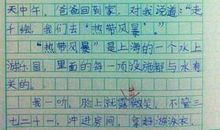 天中午，爸爸回到家，对我说道：“走
千禧，我们去‘热带风暴’。”
“热带风暴”是上海的一个水上
游乐园，里面的每一项设施都与水有
关的。
我一听，脸上就露微笑，不管三
七二十一，冲进房间，拿好游泳衣，